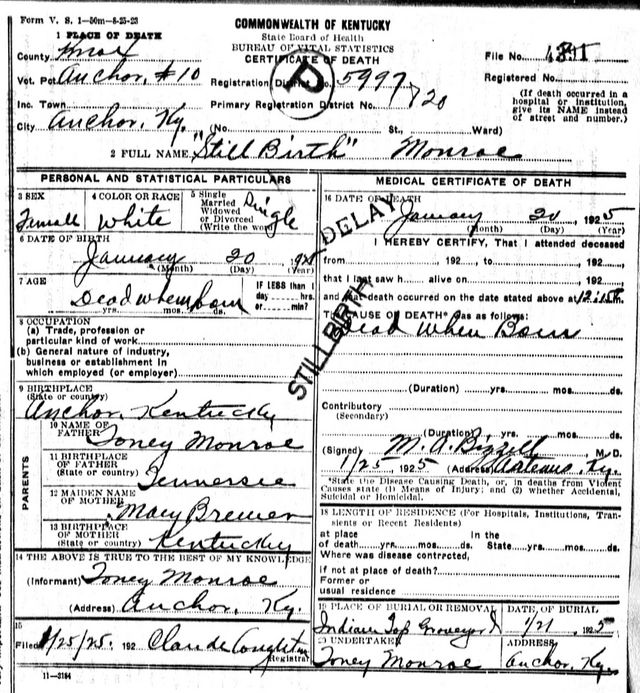 Form V. S. 1-50m-8-25-23
COMMONWEALTH OF KENTUCKY
State Board of Health
BUREAU OF VITAL STATISTICS
CERTIFICATE OF DEATH
1 PLACE OF DEATH
County Knox
File No.
Vot. Pct. Anchor, #10
Registration District No. 5997
Registered No.
Inc. Town
Primary Registration District No. 720
(If death occurred in a hospital or institution, give its NAME instead of street and number.)
City Anchor, Ky. (No. St., Ward)
2 FULL NAME "Still Birth" Monroe
PERSONAL AND STATISTICAL PARTICULARS
3 SEX
Femall
4 COLOR OR RACE
White
5 Single
Married
Widowed
or Divorced
(Write the word)
Single
6 DATE OF BIRTH
January 20, 1925
(Month) (Day) (Year)
7 AGE
Dead when born
yrs. mos. ds.
IF LESS than 1
day hrs.
or min?
8 OCCUPATION
(a) Trade, profession or
particular kind of work
(b) General nature of industry,
business or establishment in
which employed (or employer)
9 BIRTHPLACE
(State or country)
Anchor, Kentucky
PARENTS
10 NAME OF
FATHER
Toney Monroe
11 BIRTHPLACE
OF FATHER
(State or country)
Tennersee
12 MAIDEN NAME
OF MOTHER
Mary Brewer
13 BIRTHPLACE
OF MOTHER
(State or country)
Kentucky
14 THE ABOVE IS TRUE TO THE BEST OF MY KNOWLEDGE
(Informant) Toney Monroe
(Address) Anchor, Ky.
15
Filed 1/25/25. 192 Claude
Registrar
11-3184
MEDICAL CERTIFICATE OF DEATH
16 DATE OF DEATH
January 20, 1925
(Month) (Day) (Year)
DELAY
STILLBIRTH
I HEREBY CERTIFY, That I attended deceased
from , 192 to , 192
that I last saw h alive on , 192
and that death occurred on the date stated above at 12:15
The CAUSE OF DEATH* was as follows:
Dead When Born
(Duration) yrs. mos. ds.
Contributory
(Secondary)
(Duration) yrs. mos. ds.
(Signed) M. A. , M. D.
1/25 1925 (Address) Artemus, Ky.
*State the Disease Causing Death, or, in deaths from Violent
Causes state (1) Means of Injury; and (2) whether Accidental,
Suicidal or Homicidal.
18 LENGTH OF RESIDENCE (For Hospitals, Institutions, Tran-
sients or Recent Residents)
at place In the
of death yrs. mos. ds. State yrs. mos. ds.
Where was disease contrcted,
if not at place of death?
Former or
usual residence
19 PLACE OF BURIAL OR REMOVAL
Indian Top Graveyard
DATE OF BURIAL
1/21, 1925
20 UNDERTAKER
Toney Monroe
ADDRESS
Anchor, Ky.